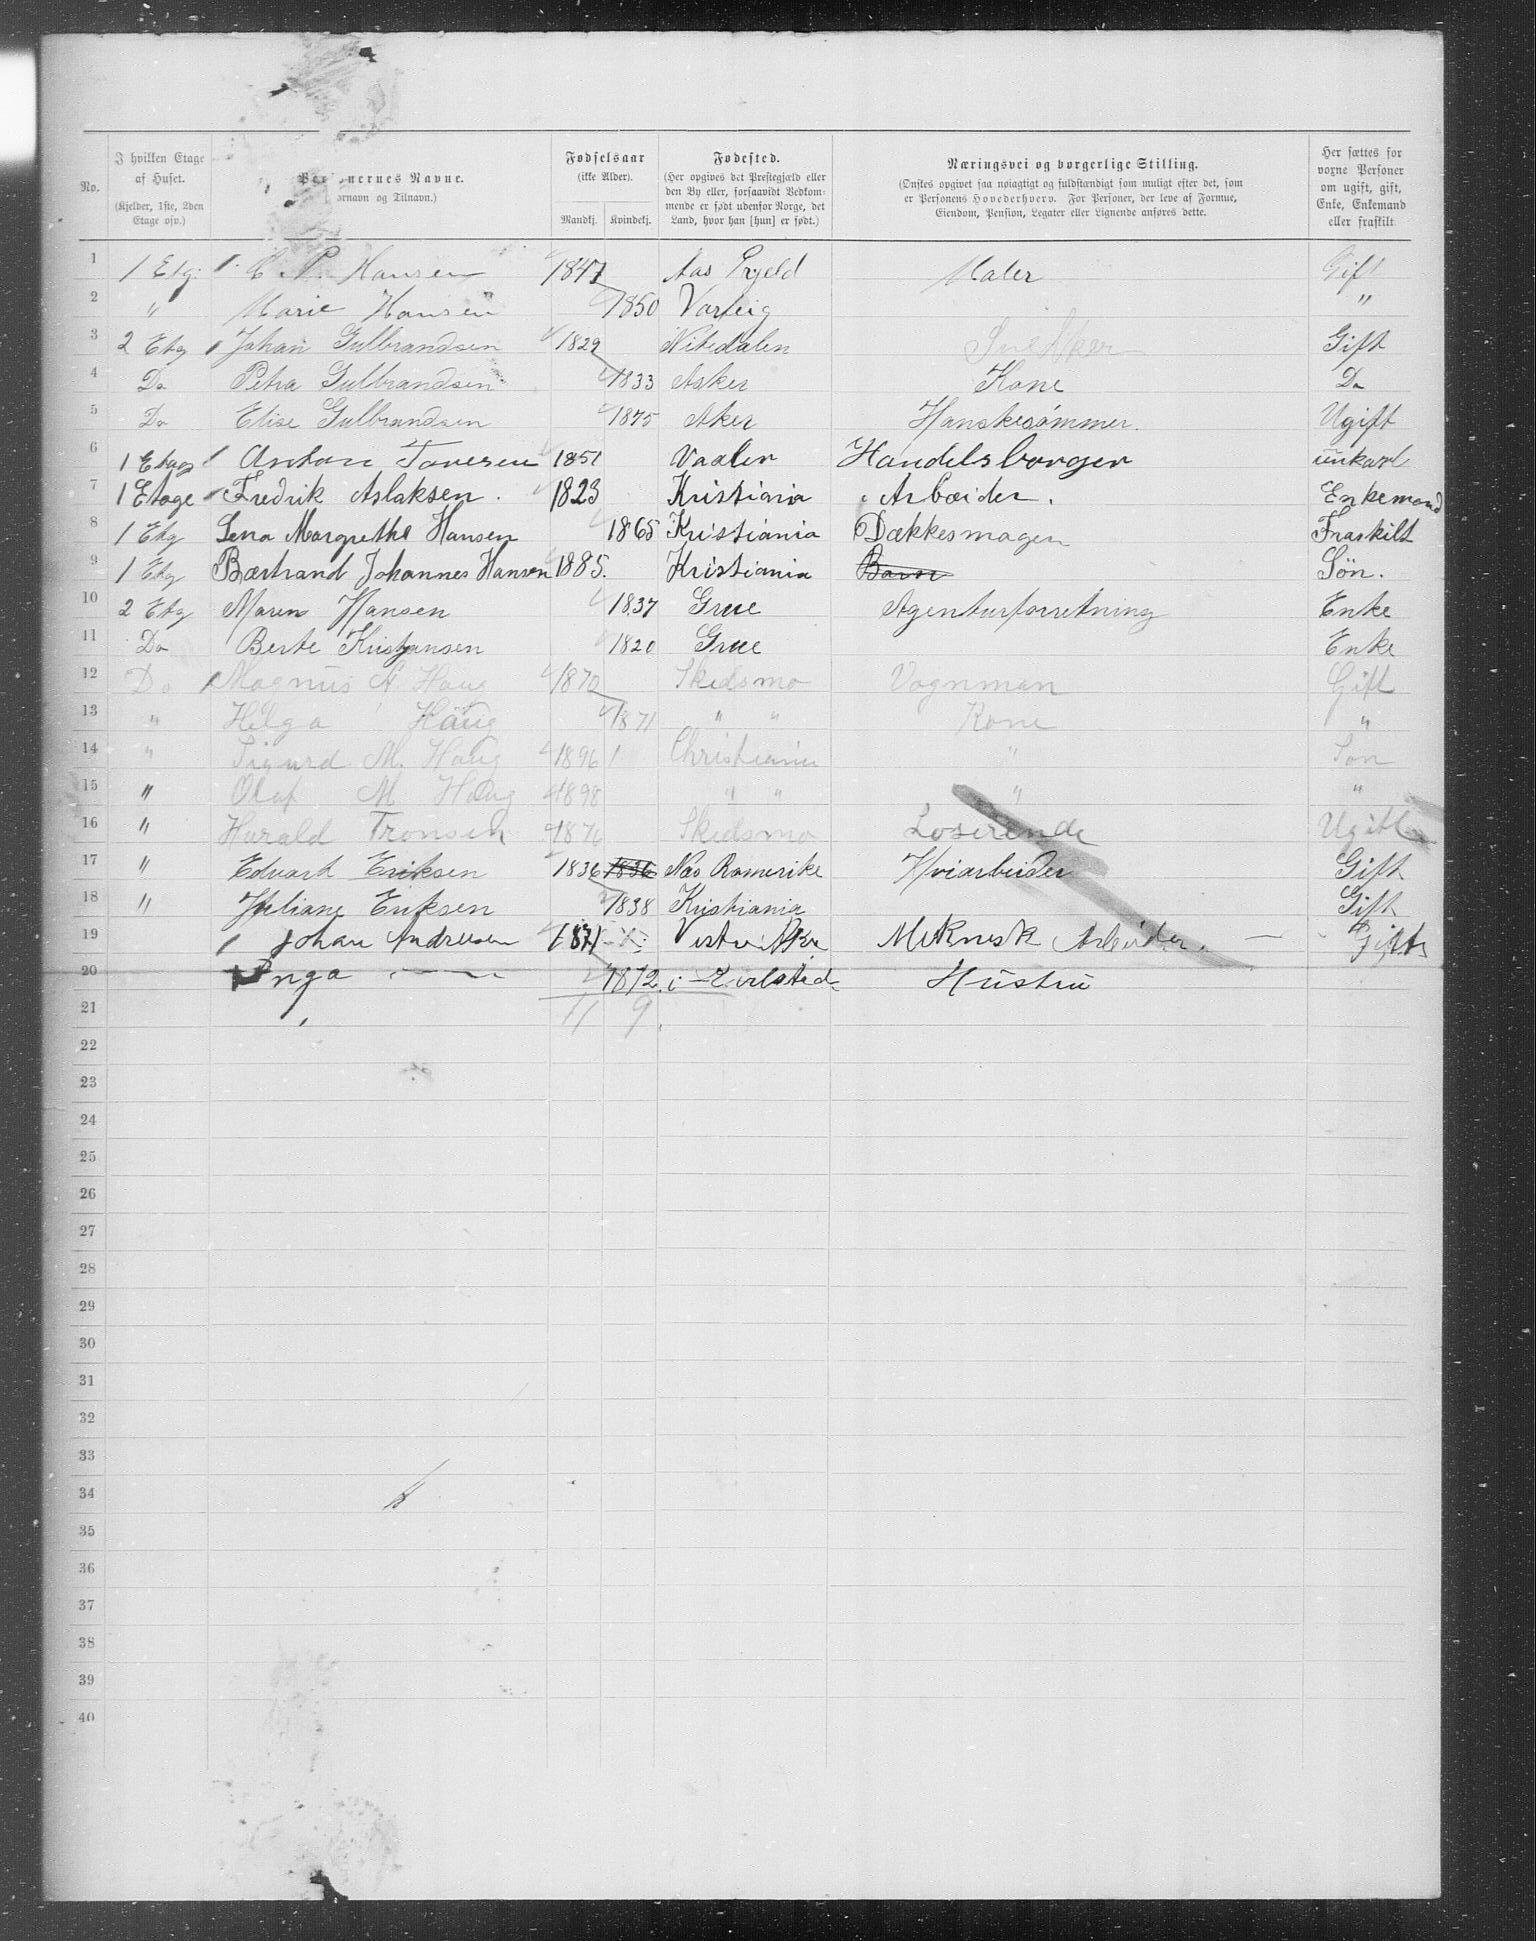 No.
I hvilken Etage af Huset. (Kjelder, 1ste, 2den Etage osv.)
nernes Navne. ornavn og Tilnavn.)
Fødselsaar (ikke Alder). Mandkj. Kvindekj.
Fødested. (Her opgives det Prestegjæld eller den By eller, forsaavidt Vedkommende er født udenfor Norge, det Land, hvor han [hun] er født.)
Næringsvei og borgerlige Stilling. (Ønskes opgivet saa nøiagtigt og fuldstændigt som muligt efter det, som er Personens Hovederhverv. For Personer, der leve af Formue, Eiendom, Pension, Legater eller Lignende anføres dette.
Her sættes for voxne Personer om ugift, gift, Enke, Enkemand eller fraskilt.
1 1 Etg. Hansen 1847 Aas Maler Gift
2 " Marie Hansen 1850 Varteig "
3 2 Etg Johan Gulbrandsen 1829 Nitedalen Snedker Gift
4 Do Petra Gulbrandsen 1833 Asker Kone Do
5 Do Elise Gulbrandsen 1875 Aker Hanskesømmer. Ugift
6 1 Etage Anton 1851 Vaaler Handelsborger unkarl
7 1 Etage Fredrik Aslaksen. 1823 Kristiania Arbeider. Enkemand
8 1 Etg Lena Margrethe Hansen 1865 Kristiania Dækkesmagen Fraskilt
9 1 Etg Bærtrand Johannes Hansen 1885. Kristiania Barn Søn.
10 2 Etg Maren Hansen 1837 Grue Agenturforretning Enke
11 Do Berte Kristjansen 1820 Grue Enke
12 Do Magnus A. Haug 1870 Skedsmo Vognman Gift
13 " Helga Haug 1871 " " Kone "
14 " Sigurd M. Haug 1896 Christiania " Søn
15 " Olaf M Haug 1898 " " " "
16 " Harald Tronsen 1876 Skedsmo Loserende Ugift
17 " Edvart Eriksen 1836 1836 Næs Romerike Gift
18 " Juliane Eriksen 1838 Kristiania Gift
19 Johan Andresen 1871 Vestre Aker Meknisk Arbeider. Gift
20 Inga 1872 Hustru
11 9
21
22
23
24
25
26
27
28
29
30
31
32
33
34
35
36
37
38
39
40